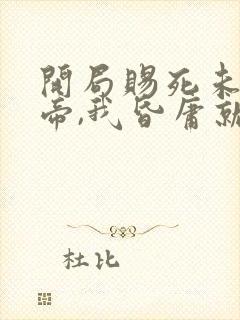 開局賜死未
帝,我昏庸就
杜比